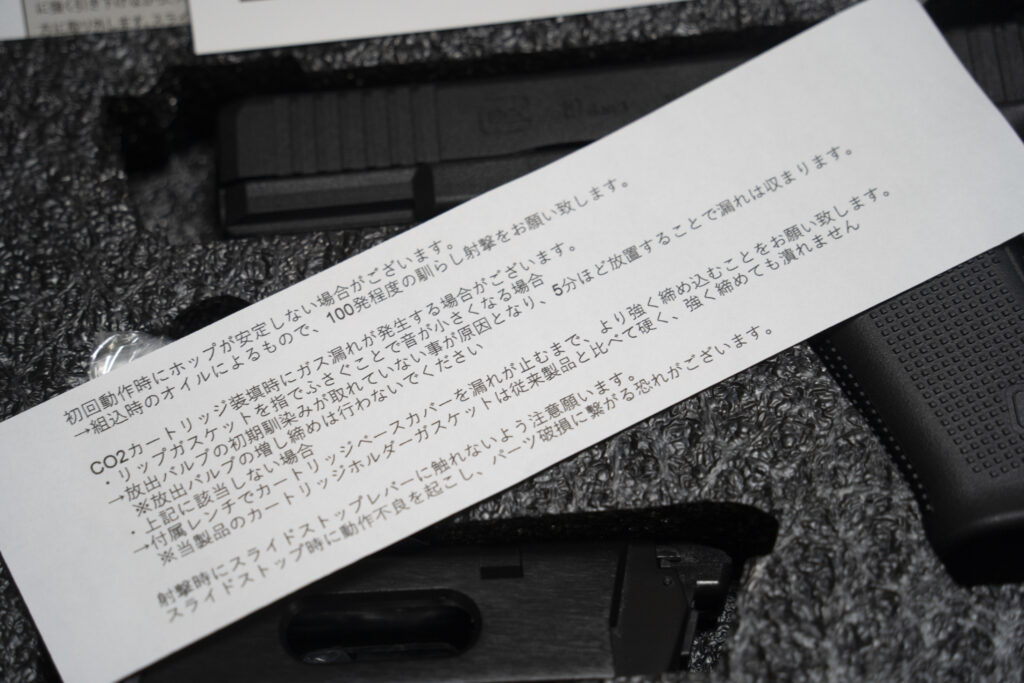 に強く引き下げながら
方に取り出します。スライ
GLOCK
初回動作時にホップが安定しない場合がございます。
→組込時のオイルによるもので、100発程度の馴らし射撃をお願い致します。
CO2カートリッジ装填時にガス漏れが発生する場合がございます。
・リップガスケットを指でふさぐことで音が小さくなる場合
→放出バルブの初期馴染みが取れていない事が原因となり、5分ほど放置することで漏れは収まります。
※放出バルブの増し締めは行わないでください
・上記に該当しない場合
→付属レンチでカートリッジベースカバーを漏れが止むまで、より強く締め込むことをお願い致します。
※当製品のカートリッジホルダーガスケットは従来製品と比べて硬く、強く締めても潰れません
射撃時にスライドストップレバーに触れないよう注意願います。
スライドストップ時に動作不良を起こし、パーツ破損に繋がる恐れがございます。